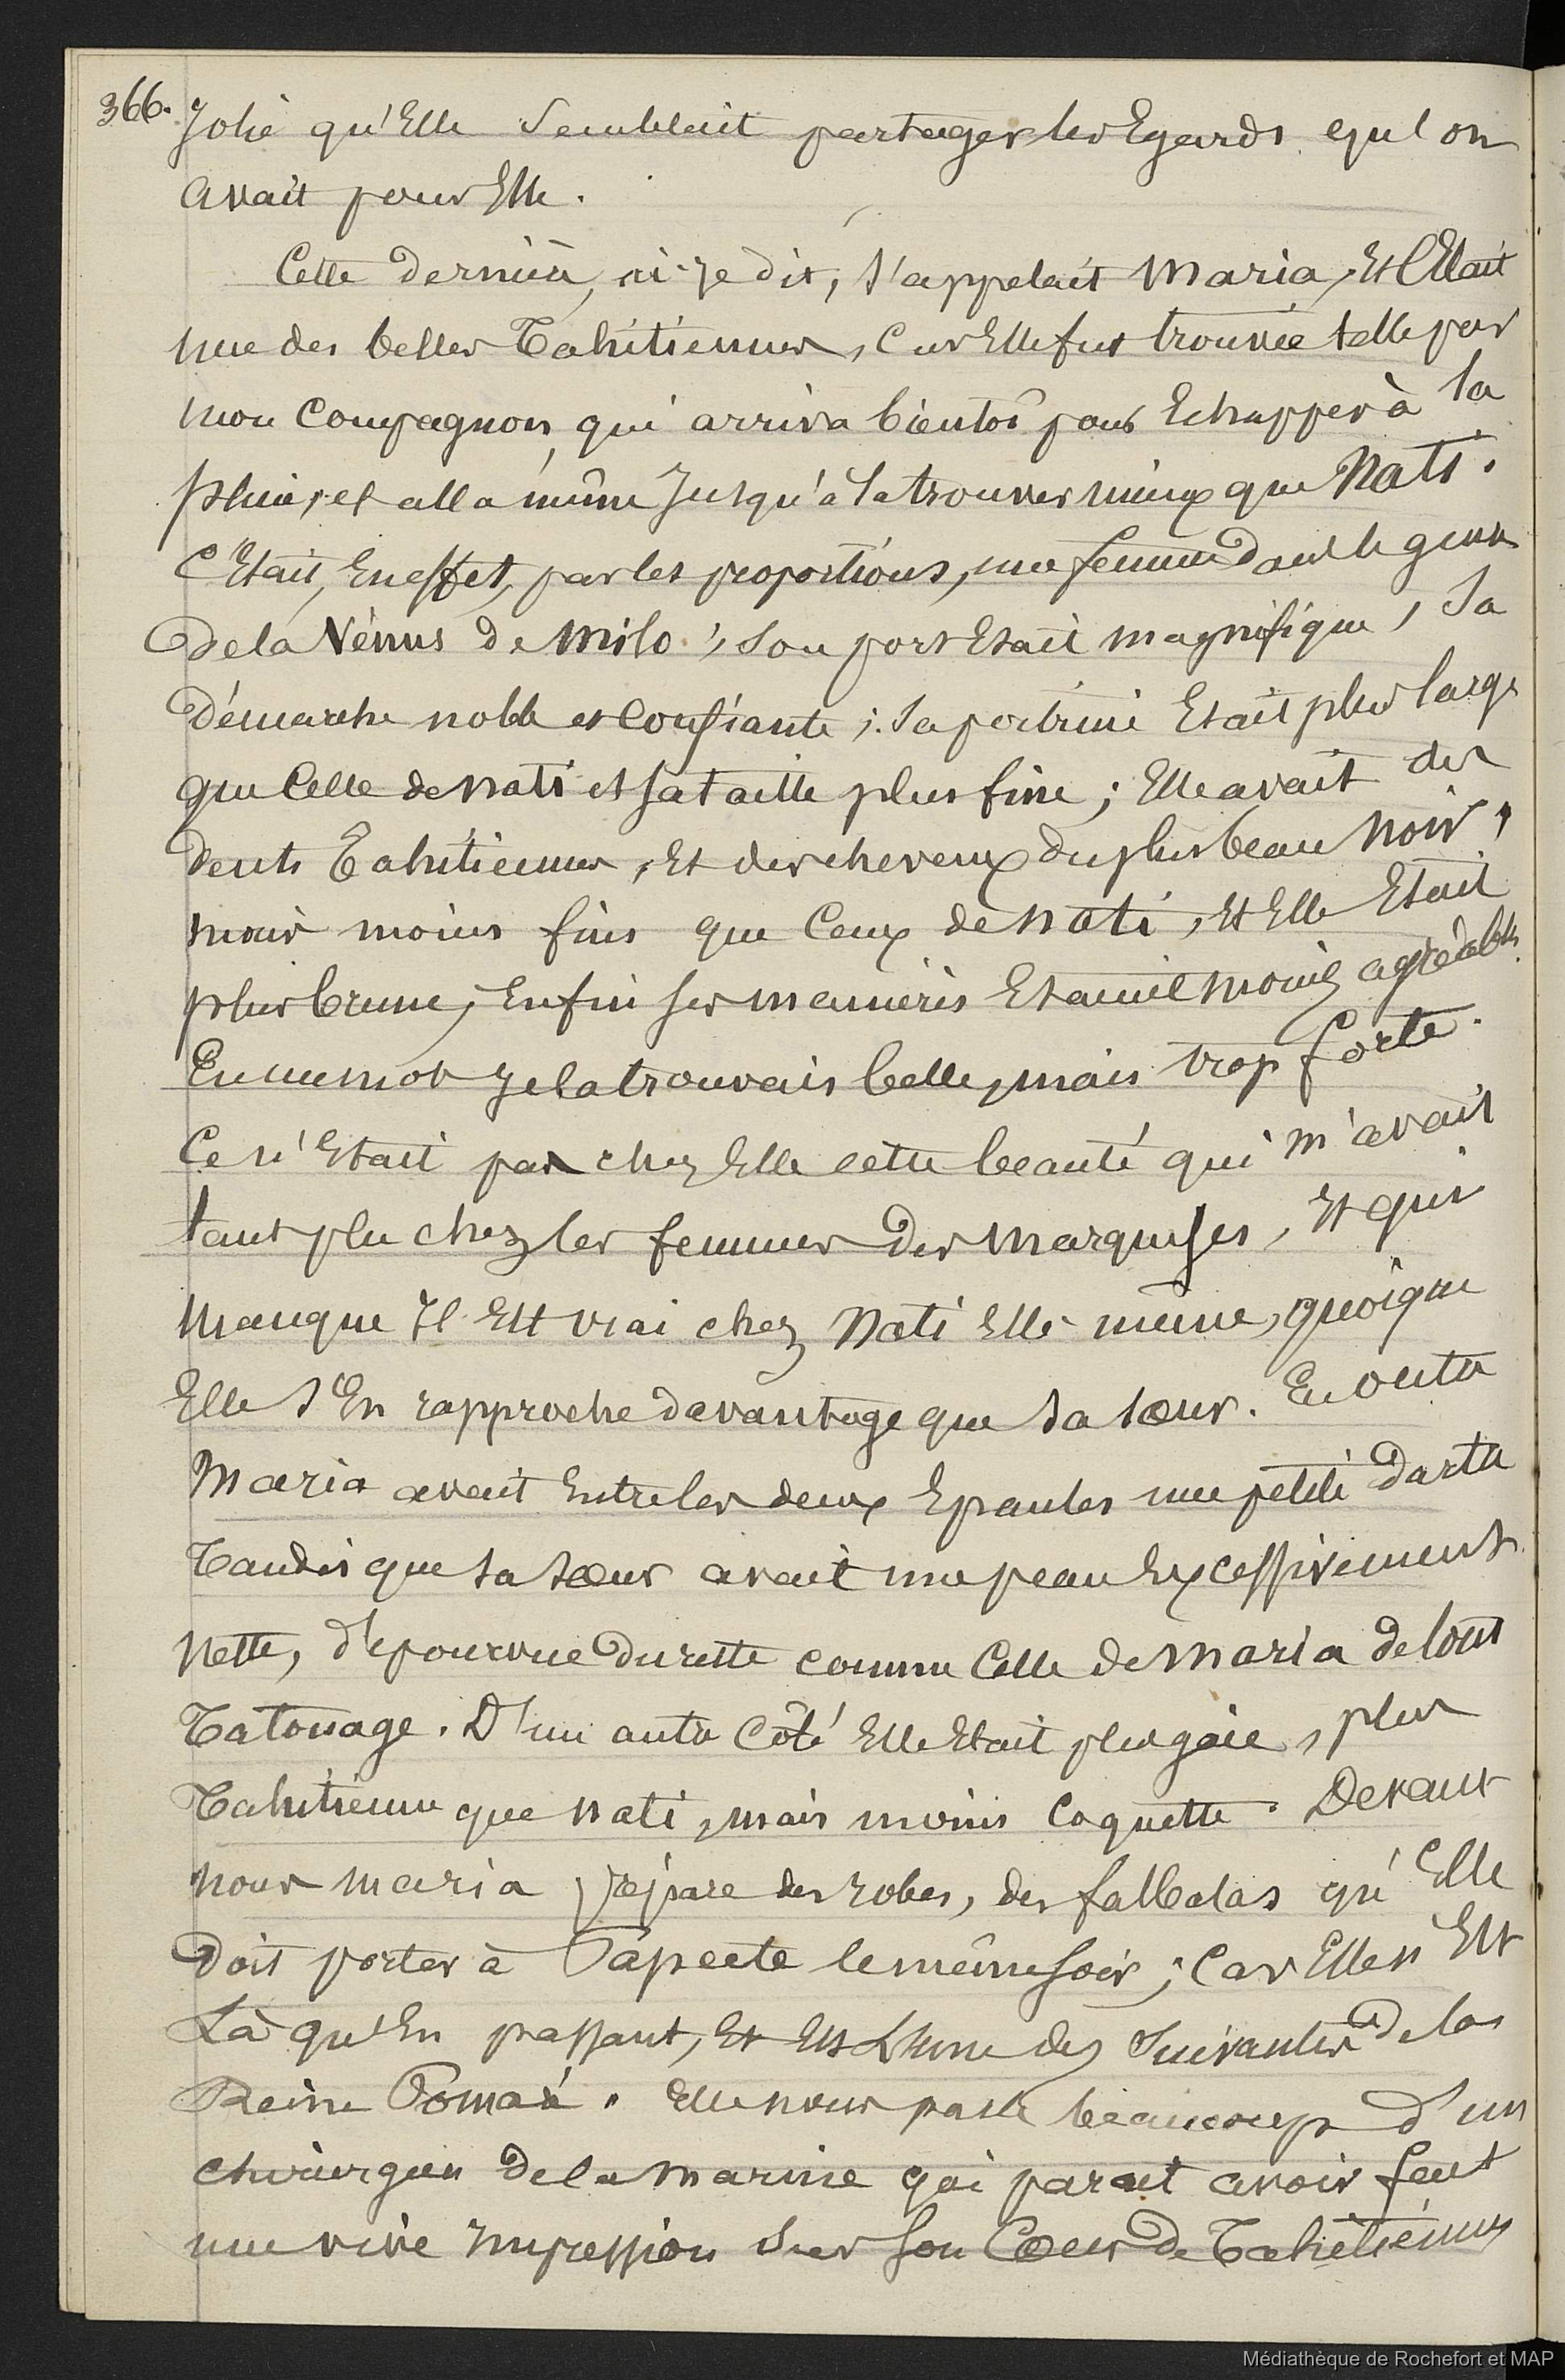 366. Jolie qu'Elle Semblait partager les Egards que l'on
avait pour Elle.
Cette dernière, ai-je dit, s'appelait Maria, Et C'Etait
une des belles Tahitiennes, Car Elle fut trouvée telle par
mon Compagnon, qui arriva bientôt pour Echapper à la
pluie, et alla même Jusqu'à la trouver mieux que Nati.
C'Etait, En effet, par les proportions, une femme dans le genre
de la Vénus de Milo ; Son port Etait magnifique, Sa
démarche noble et Confiante ; Sa poitrine Etait plus large
que Celle de Nati et sa taille plus fine ; Elle avait des
dents Tahitiennes, Et des cheveux du plus beau Noir,
mais moins fins que Ceux de Nati, Et Elle Etait
plus brune, Enfin ses manières Etaient moins agréables.
En un mot Je la trouvais belle, mais trop forte.
Ce n'Etait pas chez Elle cette beauté qui m'avait
tant plu chez les femmes des Marquises, Et qui
Manque Il Est vrai chez Nati Elle-même, quoique
Elle S'En rapproche davantage que Sa Sœur. En outre
Maria avait Entre les deux Epaules une petite Dartre
Tandis que Sa Sœur avait une peau Excessivement
Nette, dépourvue du reste comme Celle de Maria de tout
Tatouage. D'un autre Côté Elle Etait plus gaie, plus
Tahitienne que Nati, mais moins Coquette. Devant
nous Maria prépare des robes, des falbalas qu'Elle
Doit porter à Papeete le même soir ; Car Elle n'Est
Là qu'En passant, Et Est L'une des Suivantes de la
Reine Pomaré. Elle nous parle beaucoup d'un
chirurgien de la Marine qui parait avoir fait
une vive Impression Sur Son Cœur de Tahitienne
Médiathèque de Rochefort et MAP